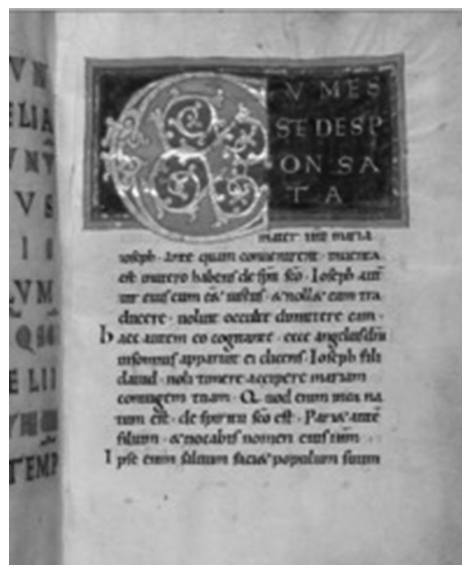 C
V M ES
SE DESP
ON SA
T A
mater eius maria
ioseph · ante quam conuenirent · inuenta
est inutero habens de spu sco · Ioseph aut
uir eius cum eet iustus · & nollet eam tra
ducere · uoluit occulte dimittere eam ·
haec autem eo cogitante · ecce angelus dni
insomnis apparuit ei dicens · Ioseph fili
dauid · noli timere accipere mariam
coniugem tuam · Quod enim inea na
tum est · de spiritu sco est · Pariet autem
filium · & uocabis nomen eius ihm
Ipse enim saluum faciet populum suum
V N
ELIA
V N V
V S
LVM
E LII
TEMP